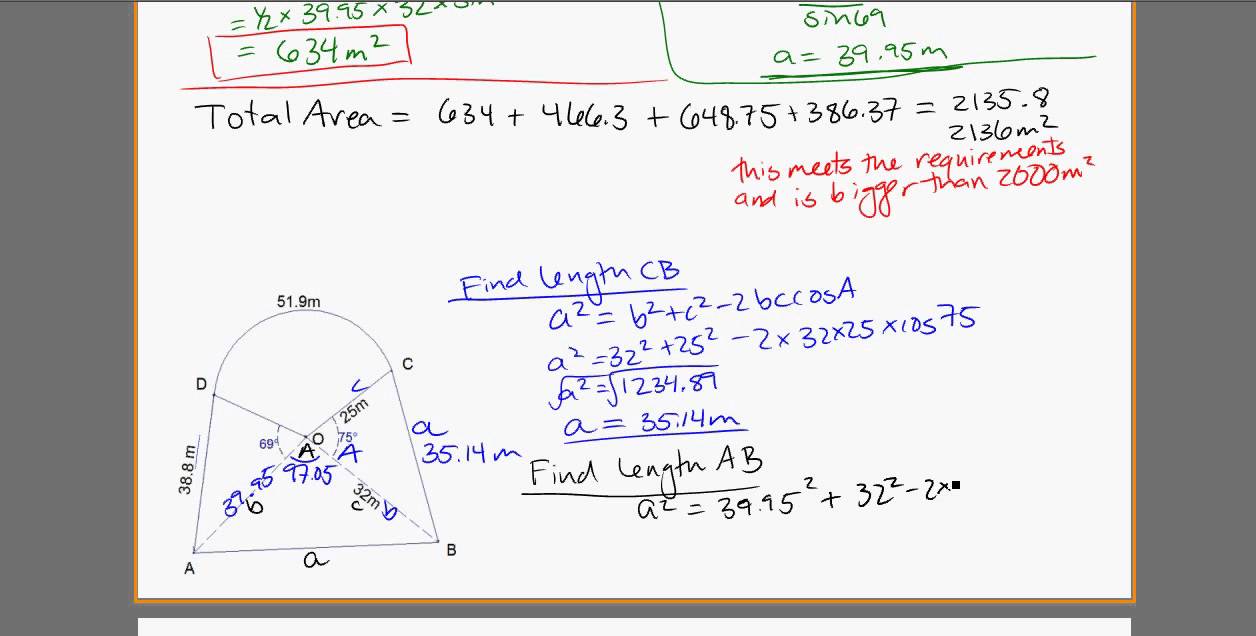 = ½ × 39.95 × 32 × sin
= 634 m²
sin69
a = 39.95m
Total Area = 634 + 466.3 + 648.75 + 386.37 = 2135.8
2136m²
this meets the requirements
and is bigger than 2000m²
Find length CB
a² = b² + c² - 2bccosA
a² = 32² + 25² - 2 × 32 × 25 × cos 75
√a² = √1234.89
a = 35.14m
Find length AB
a² = 39.95² + 32² - 2×
51.9m
D
C
c
25m
a
35.14m
69°
O
75°
A
A
38.8 m
39.95
97.05
b
32m
c
b
A
a
B